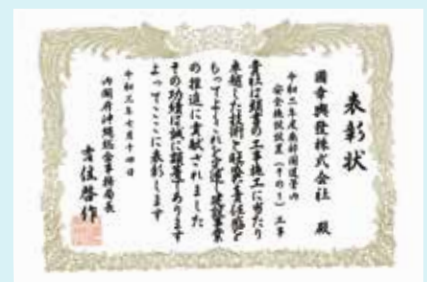 表彰状
國幸興發株式会社 殿
令和二年度南部国道管内
安全施設設置(その1)工事
貴社は頭書の工事施工に当たり
卓越した技術と旺盛な責任感を
もってよくこれを完遂し建設事業
の推進に貢献されました
その功績は誠に顕著であります
よってここに表彰します
令和三年七月十四日
内閣府沖縄総合事務局長
吉住啓作